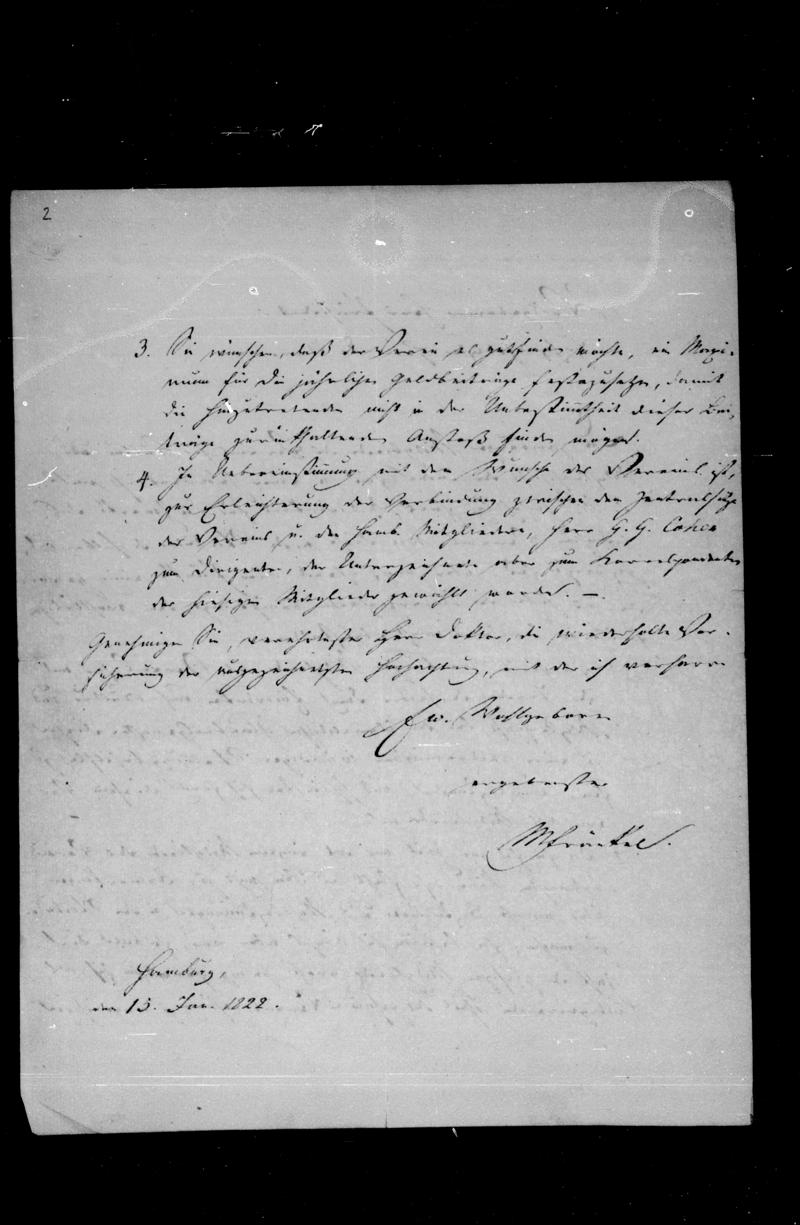 2
3. Sie wünschen, daß der Verein es gutfinden möchte, ein Maxi-
mum für die jährlichen Geldbeiträge festzusetzen, damit
die Hinzutretenden nicht in der Unbestimmtheit dieser Bei-
träge zurückhaltenden Anstoß finden mögen.
4. In Uebereinstimmung mit dem Wunsche des Vereins ist,
zur Erleichterung der Verbindung zwischen dem Zentralsitze
des Vereins u. den Hamb. Mitgliedern, Herr G. G. Cohen
zum Dirigenten, der Unterzeichnete aber zum Korrespondenten
der hiesigen Mitglieder gewählt worden. —
Genehmigen Sie, verehrtester Herr Doktor, die wiederholte Ver-
sicherung der ausgezeichnetsten Hochachtung, mit der ich verharre
Ew. Wohlgeboren
ergebenster
MFränkel.
Hamburg,
den 15. Jan. 1822.